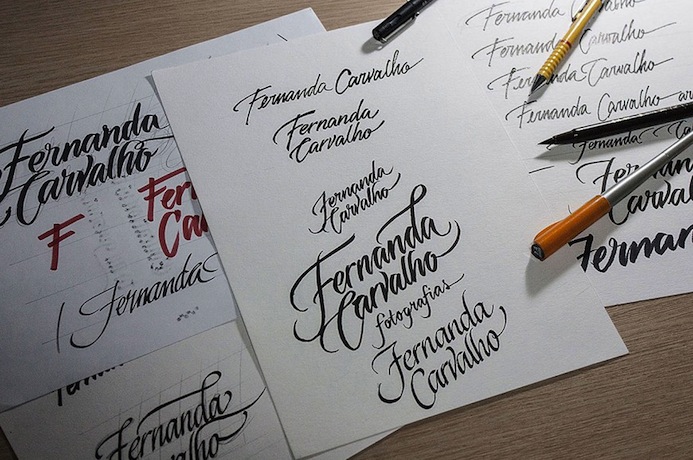 Fernanda
Carvalho
F
Fer
Ca
Fernanda
Fernanda
Carvalho
Fernanda Carvalho
Fernanda
Carvalho
Fernanda
Carvalho
Fernanda
Carvalho
fotografias
Fernanda
Carvalho
Fernanda Carvalho
Fernanda Carvalho
Fernanda Carvalho
Fernanda Carvalho
Fernan